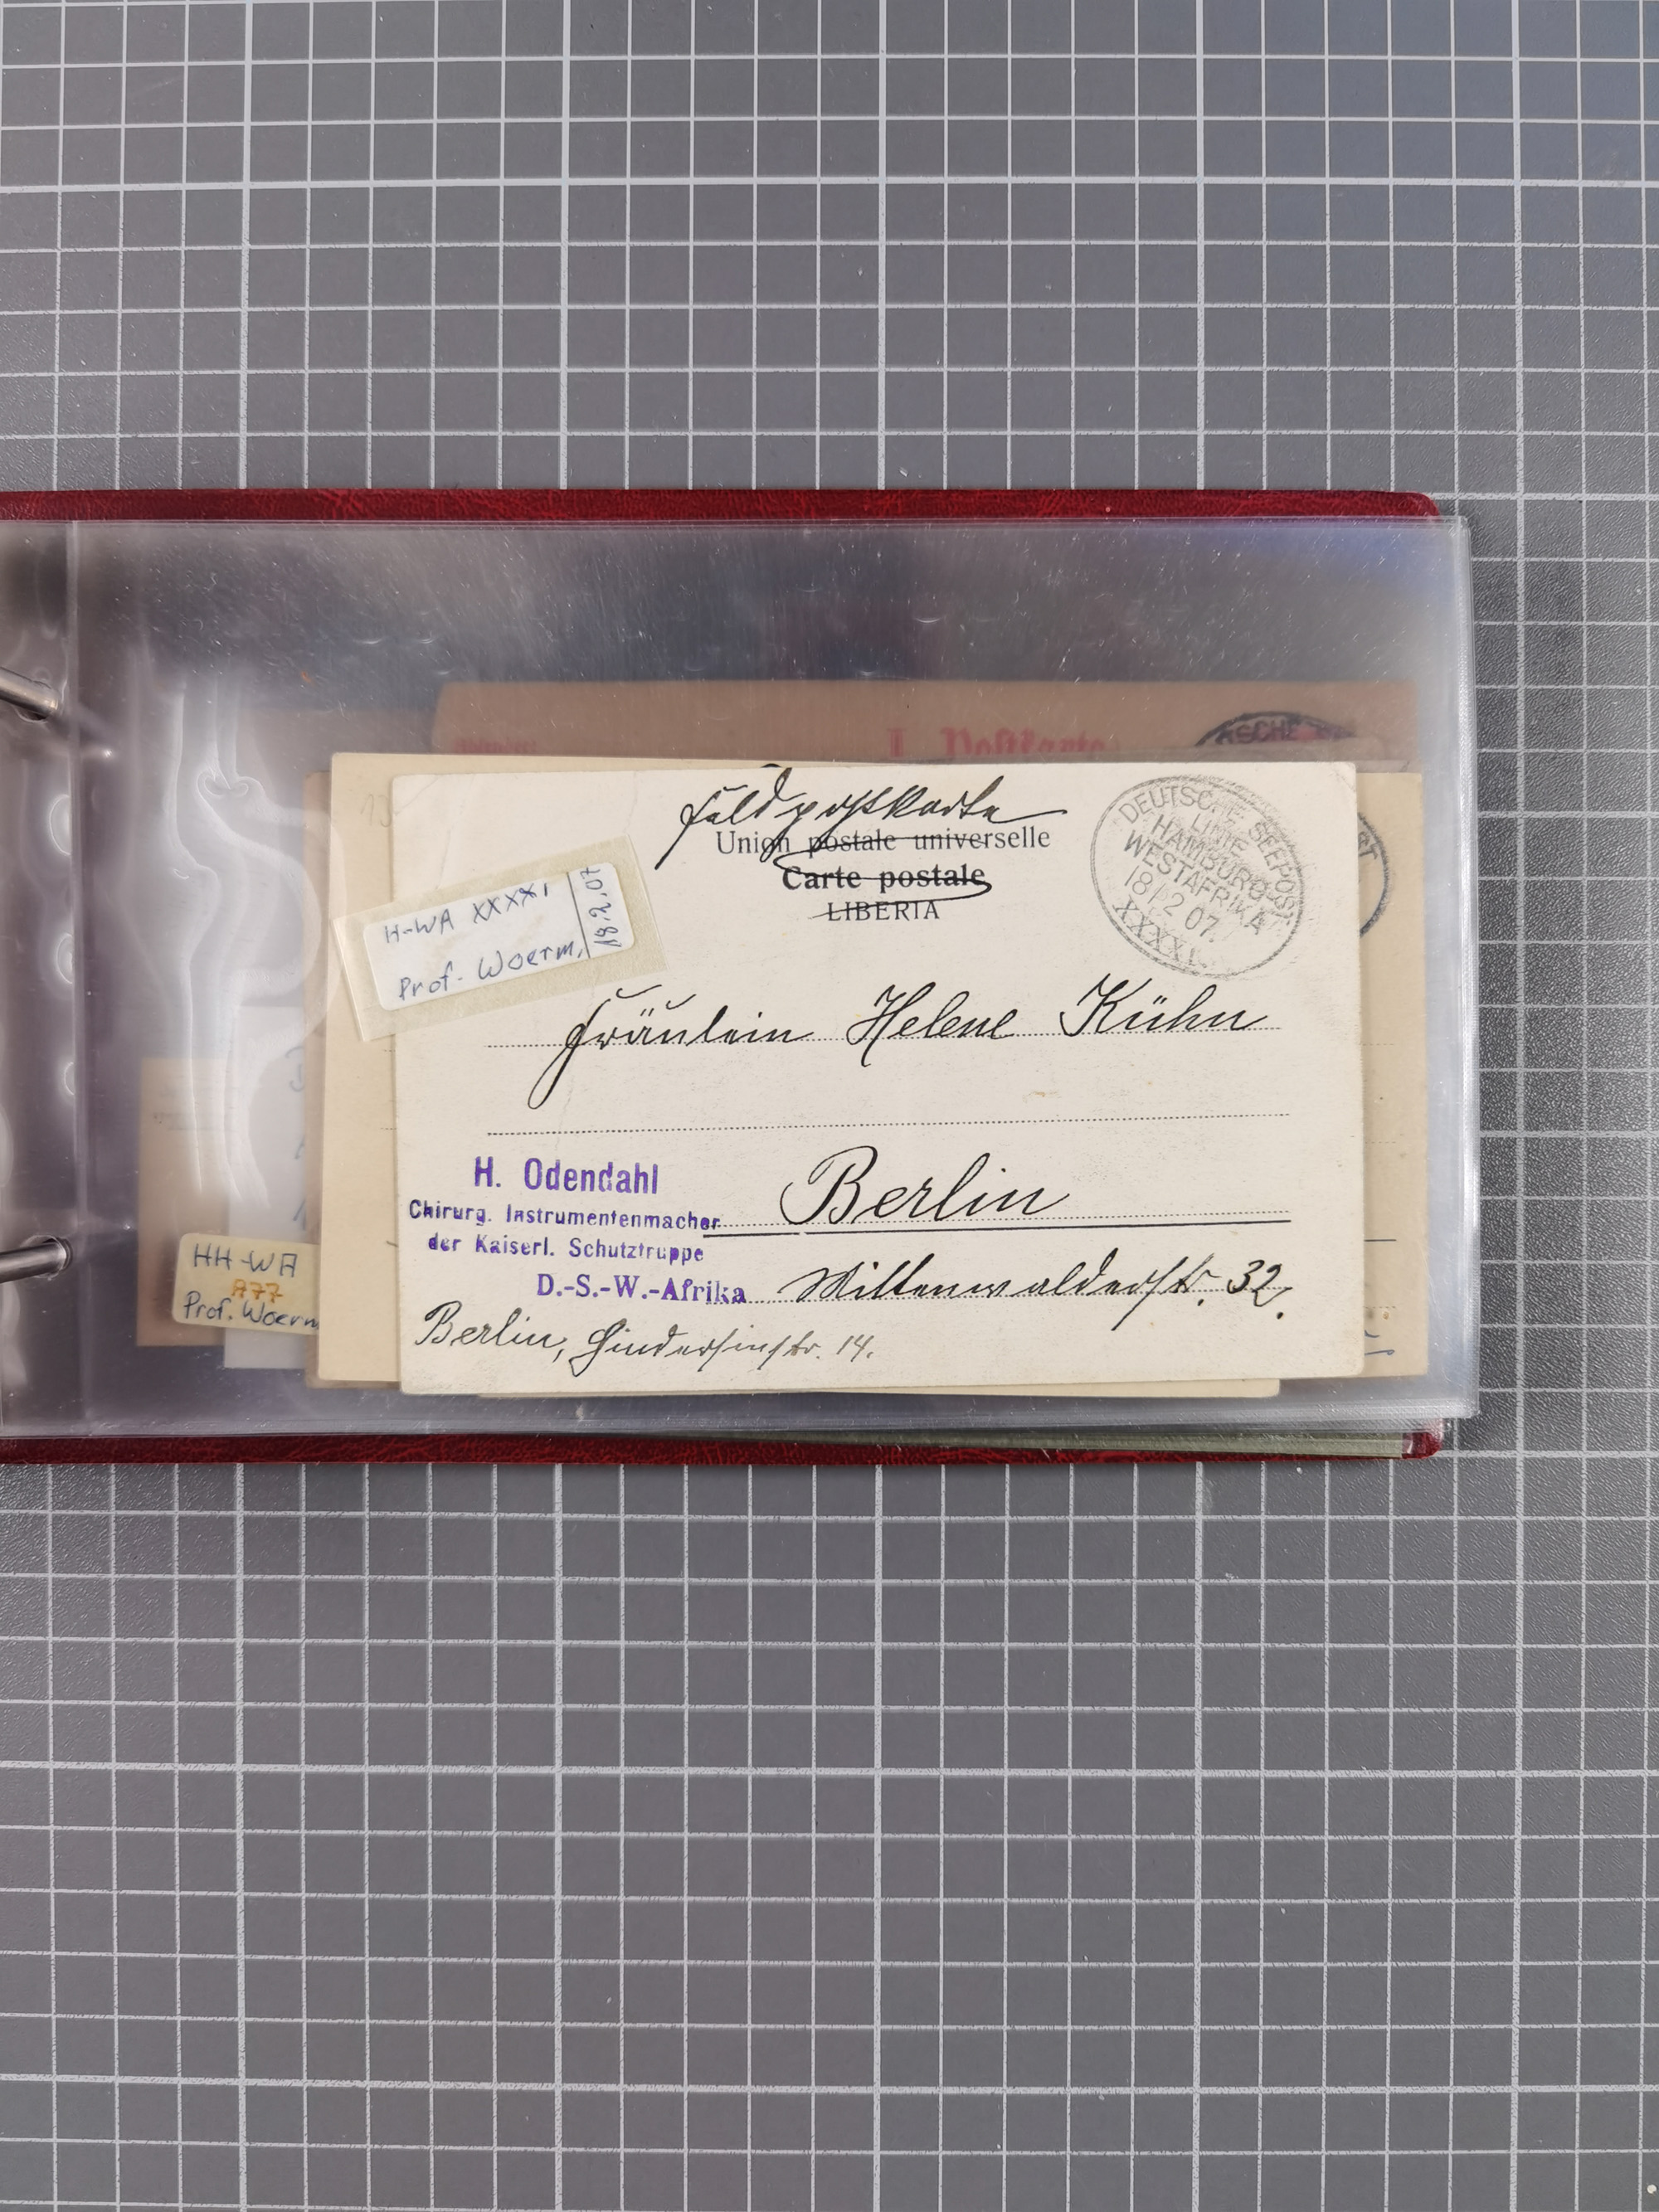 Feldpostkarte
Union postale universelle
Carte postale
LIBERIA
DEUTSCHE SEEPOST
LINIE
HAMBURG-
WESTAFRIKA
18/2 07.
XXXXI.
H-WA XXXXI
18.2.07
Prof. Woerm.
Fräulein Helene Kühn
H. Odendahl
Chirurg. Instrumentenmacher
der Kaiserl. Schutztruppe
D.-S.-W.-Afrika
Berlin
Mittenwalderstr. 32.
Berlin, Hindersinstr. 14.
HH-WA
A77
Prof. Woerm
SCHE